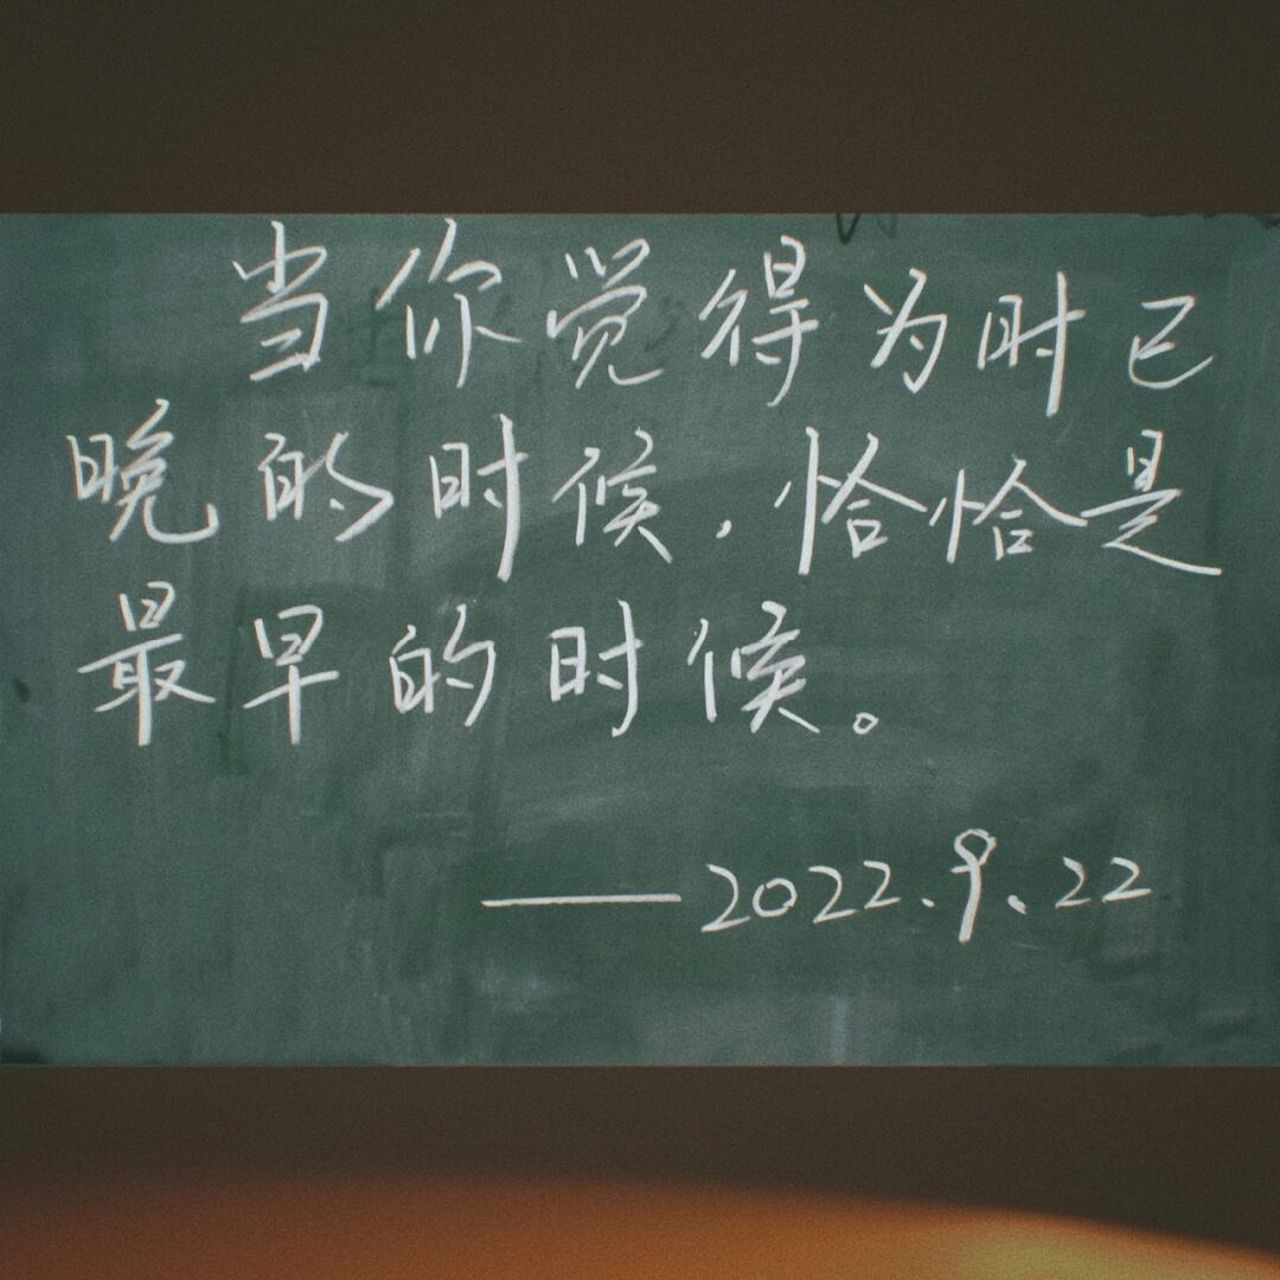 当你觉得为时已
晚的时候，恰恰是
最早的时候。
——2022.9.22